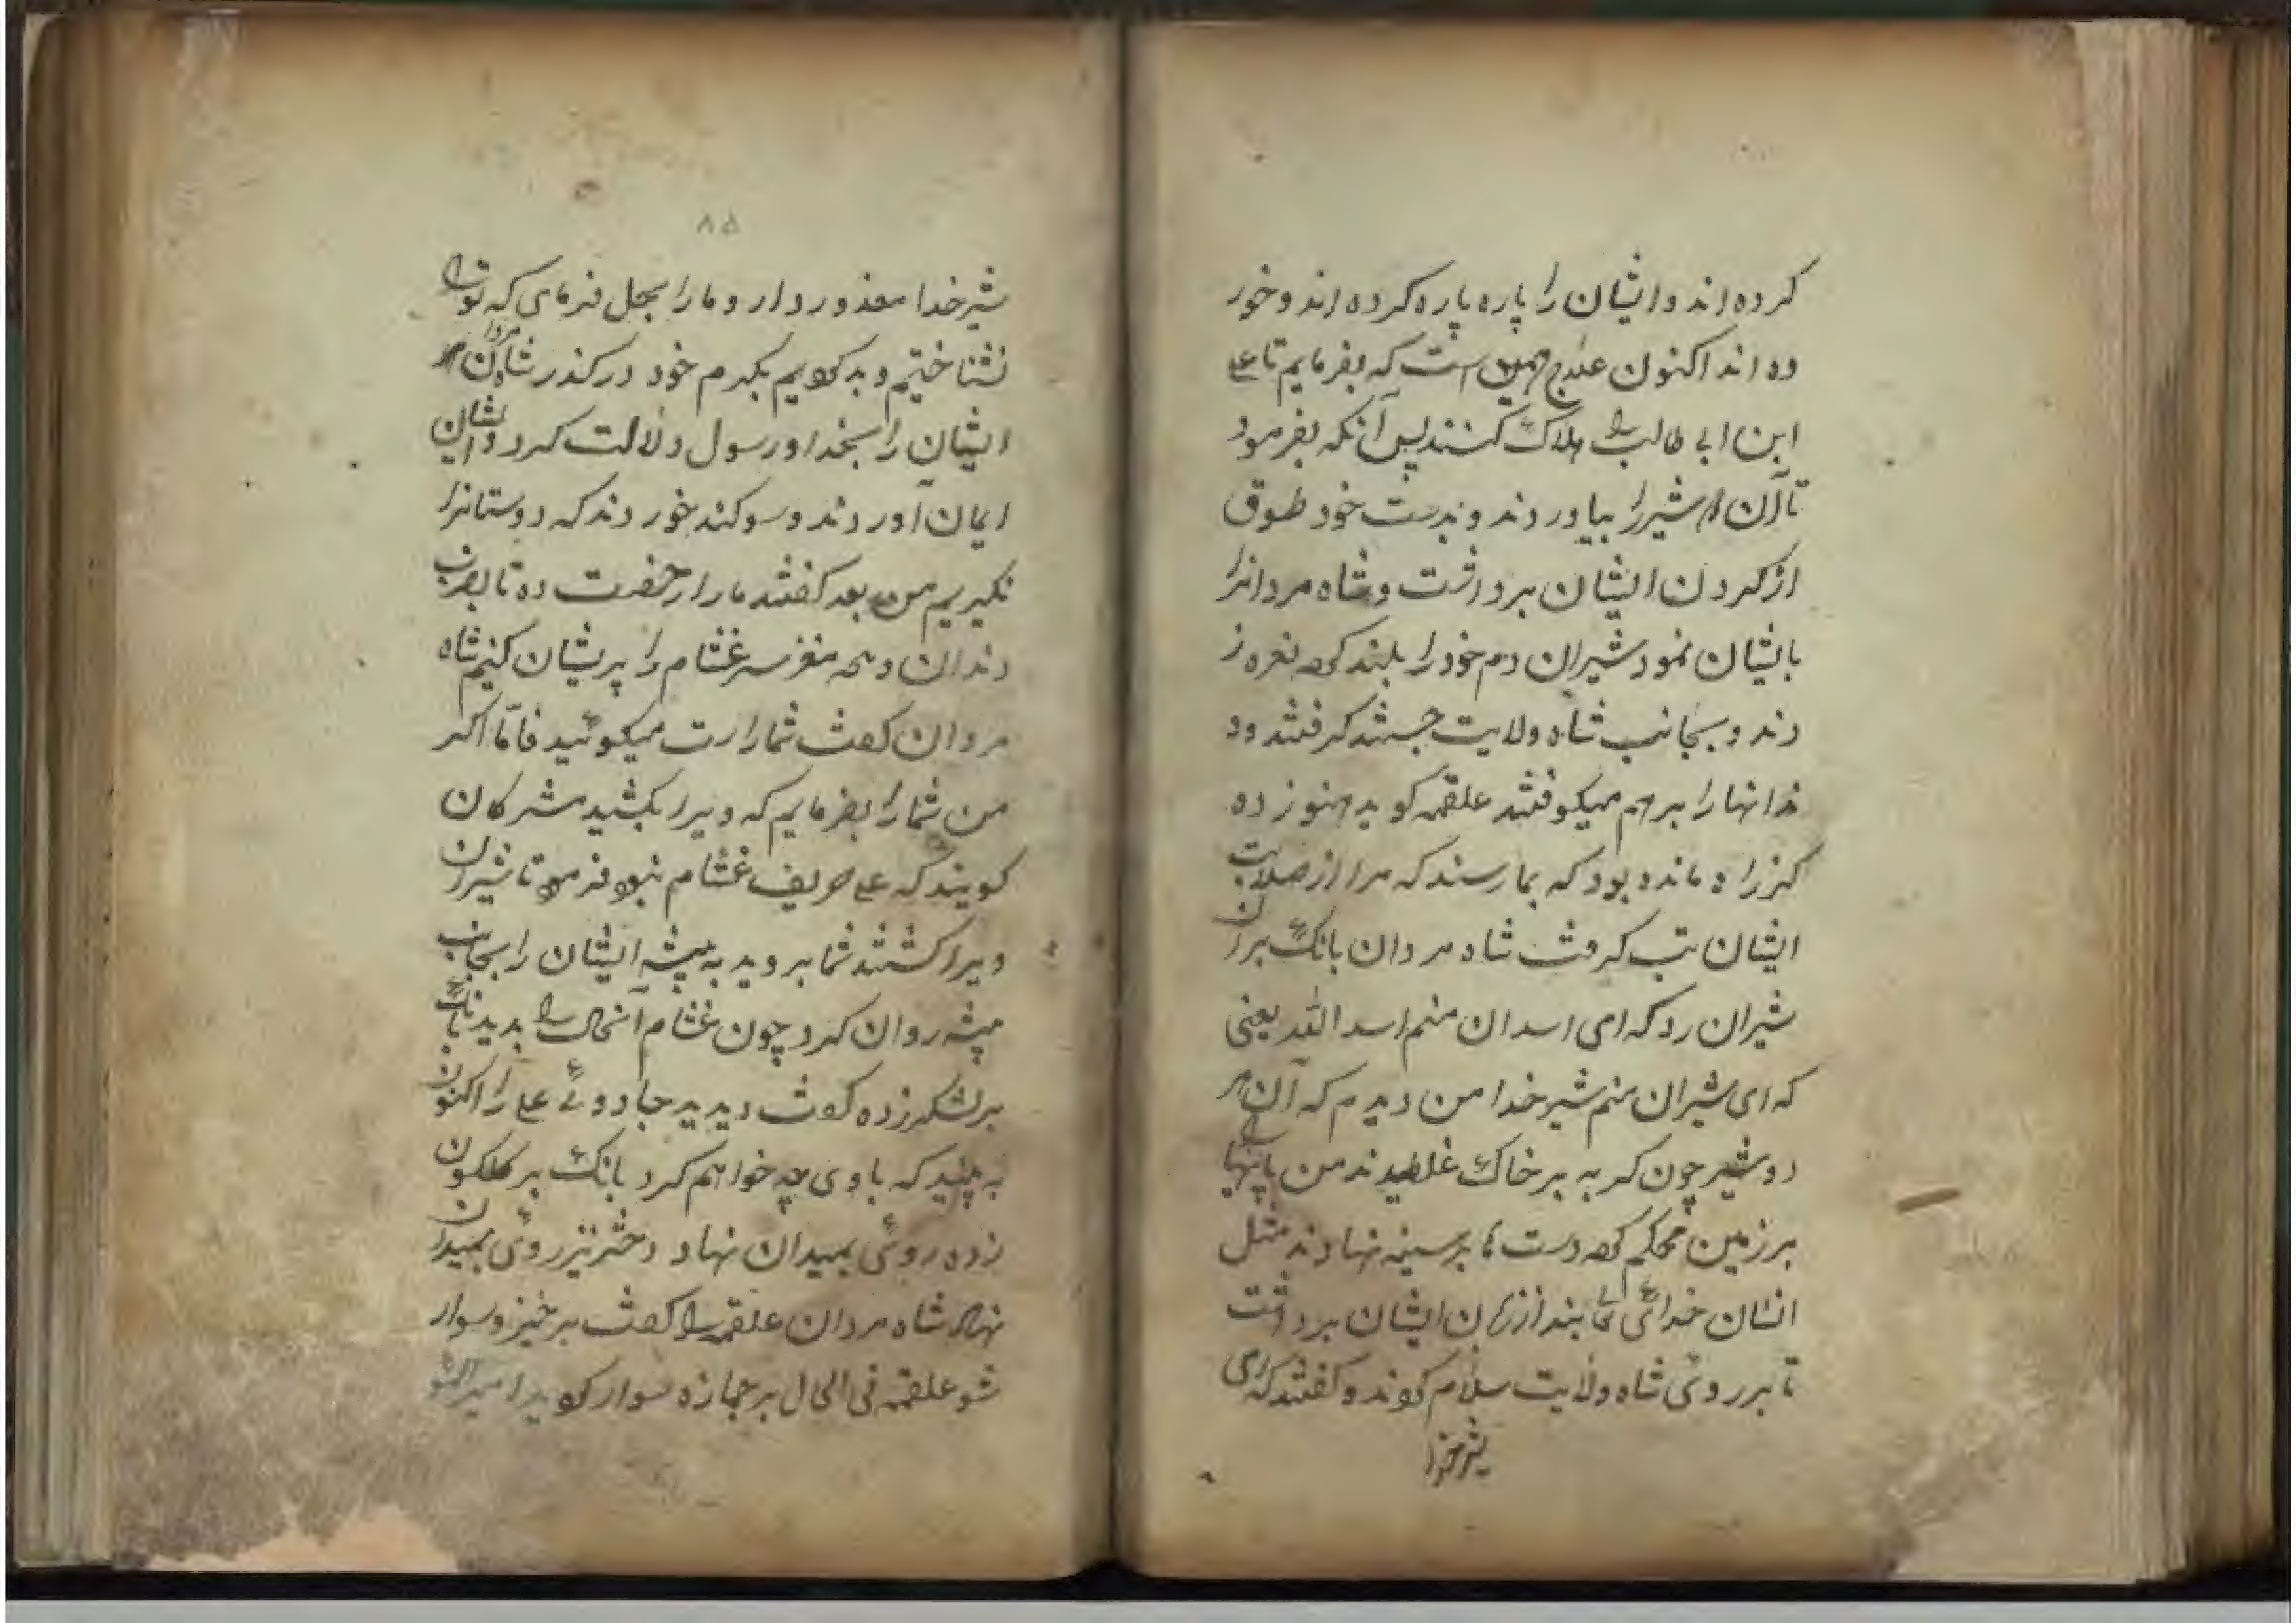 کرده اند و ایشان را پاره پاره کرده اند و خور
ده اند اکنون علاج همین است که بفرمایم تا علی
ابن ابی طالب را هلاک کنند پس آنکه بفرمود
تا آن شیر را بیاوردند و بدست خود طوق
از کردن ایشان برداشت و شاه مردانرا
بایشان نمود شیران دم خود را بلند کرده نعره ز
دند و بجانب شاه ولایت جستند کرفتند و د
ندانها را بر هم میکوفتند علقمه کوید هنوز ده
کز راه مانده بود که بما رسند که مرا از صلابت
ایشان تب کرفت شاه مردان بانک بران
شیران زد که ای اسدان منم اسد الله یعنی
که ای شیران منم شیر خدا من دیدم که آن هر
دو شیر چون کربه بر خاک غلطیدند من پایها
بر زمین محکم کرده دستها بر سینه نهادند مثل
انسان خدائی بند از زبان ایشان برداشت
تا بر روئی شاه ولایت سلام کردند و کفتند که ای
شیر خدا
۸۵
شیر خدا معذور دار و ما را بحل فرمای که تو را
نشناختیم و بد کردیم بکرم خود درکذر شاه مردان
ایشان را بخدا و رسول دلالت کرد و ایشان
ایمان آوردند و سوکند خوردند که دوستانرا
نکیریم من بعد کفتند ما را رخصت ده تا بضرب
دندان و مغز سر غشام را پریشان کنیم شاه
مردان کفت شما راست میکوئید فامّا اکر
من شما را بفرمایم که ویرا بکشید مشرکان
کویند که علی حریف غشام نبود فرمود تا شیران
ویرا کشتند شما بروید به بیشه ایشان را بجانب
بیشه روان کرد چون غشام آنحال را بدید بانک
بر لشکر زده کفت دیدید جادوئی علی را اکنون
به بینید که با وی چه خواهم کرد بانک بر کلکون
زده روئی بمیدان نهاد دختر نیز روئی بمیدان
نهاد شاه مردان علقمه را کفت بر خیز و سوار
شو علقمه فی الحال بر جمازه سوار کوید امیر المو